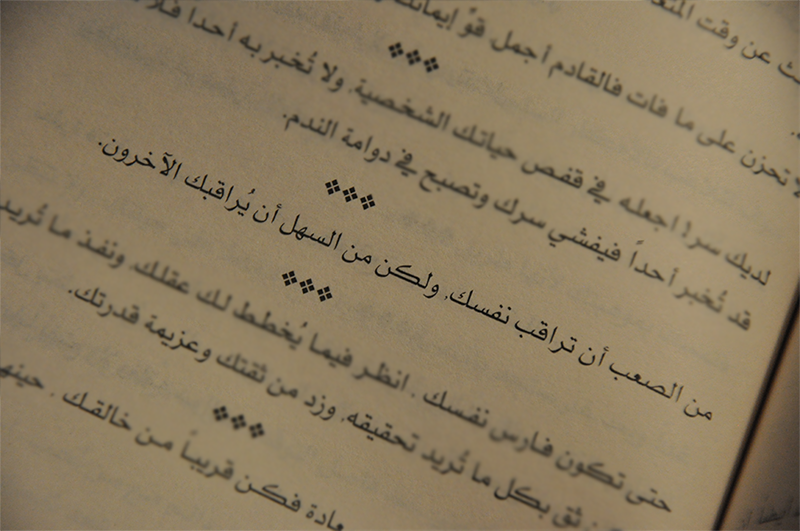 ث عن وقت
لا تحزن على ما فات فالقادم أجمل قوِّ
لديك سر! اجعله في قفص حياتك الشخصية, ولا تُخبر به أحدا
قد تُخبر أحداً فيفشي سرك وتصبح في دوامة الندم.
من الصعب أن تراقب نفسك, ولكن من السهل أن يُراقبك الآخرون.
حتى تكون فارس نفسك . انظر فيما يُخطط لك عقلك, ونفذ ما تُريد
ثق بكل ما تُريد تحقيقه, وزد من ثقتك وعزيمة قدرتك.
فكن قريباً من خالقك .